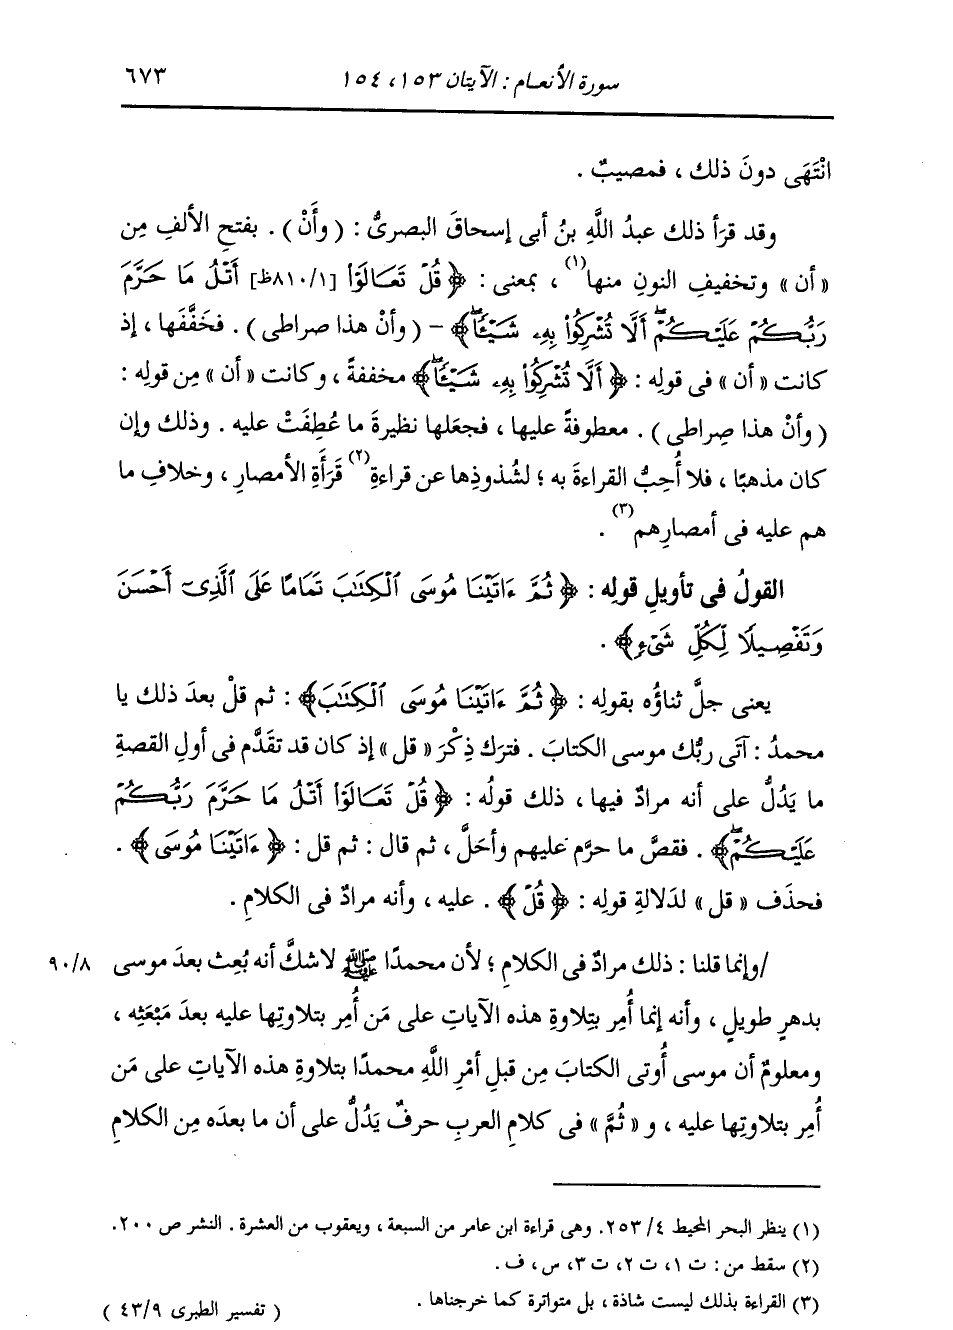 سورة الأنعام : الآيتان ١٥٣، ١٥٤ ٦٧٣
انْتَهَى دونَ ذلك ، فمصيبٌ .
وقد قرَأ ذلك عبدُ اللَّهِ بنُ أبى إسحاقَ البصرىُّ : ( وأَنْ ) . بفتحِ الألفِ مِن
« أن » وتخفيفِ النونِ منها(١) ، بمعنى : ﴿ قُلْ تَعَالَوْا [٨١٠/١ظ] أَتْلُ مَا حَرَّمَ
رَبُّكُمْ عَلَيْكُمْ أَلَّا تُشْرِكُوا بِهِۦ شَيْـًٔا ﴾ - ( وأنْ هذا صراطى ) . فخَفَّفها ، إذ
كانت « أن » فى قولِه : ﴿ أَلَّا تُشْرِكُوا بِهِۦ شَيْـًٔا ﴾ مخففةً ، وكانت « أن » مِن قولِه :
( وأنْ هذا صِراطى ) . معطوفةً عليها ، فجعَلها نظيرةَ ما عُطِفَتْ عليه . وذلك وإن
كان مذهبًا ، فلا أُحِبُّ القراءةَ به ؛ لشُذوذِها عن قراءةِ(٢) قَرَأَةِ الأمصارِ ، وخلافِ ما
هم عليه فى أمصارِهم(٣) .
القولُ فى تأويلِ قولِه : ﴿ ثُمَّ ءَاتَيْنَا مُوسَى ٱلْكِتَٰبَ تَمَامًا عَلَى ٱلَّذِىٓ أَحْسَنَ
وَتَفْصِيلًا لِّكُلِّ شَىْءٍ ﴾ .
يعنى جلَّ ثناؤُه بقولِه : ﴿ ثُمَّ ءَاتَيْنَا مُوسَى ٱلْكِتَٰبَ ﴾ : ثم قلْ بعدَ ذلك يا
محمدُ : آتَى ربُّك موسى الكتابَ . فترَك ذِكْرَ « قل » إذ كان قد تقَدَّم فى أولِ القصةِ
ما يَدُلُّ على أنه مرادٌ فيها ، ذلك قولُه : ﴿ قُلْ تَعَالَوْا أَتْلُ مَا حَرَّمَ رَبُّكُمْ
عَلَيْكُمْ ﴾ . فقصَّ ما حرَّم عليهم وأحَلَّ ، ثم قال : ثم قل : ﴿ ءَاتَيْنَا مُوسَى ﴾ .
فحذَف « قل » لدَلالةِ قولِه : ﴿ قُلْ ﴾ . عليه ، وأنه مرادٌ فى الكلامِ .
/وإنما قلنا : ذلك مرادٌ فى الكلامِ ؛ لأن محمدًا ﷺ لاشكَّ أنه بُعِث بعدَ موسى ٩٠/٨
بدهرٍ طويلٍ ، وأنه إنما أُمِر بتِلاوةِ هذه الآياتِ على مَن أُمِر بتلاوتِها عليه بعدَ مَبْعَثِه ،
ومعلومٌ أن موسى أُوتى الكتابَ مِن قبلِ أمْرِ اللَّهِ محمدًا بتلاوةِ هذه الآياتِ على مَن
أُمِر بتلاوتِها عليه ، و « ثُمَّ » فى كلامِ العربِ حرفٌ يَدُلُّ على أن ما بعدَه مِن الكلامِ
(١) ينظر البحر المحيط ٤/ ٢٥٣. وهى قراءة ابن عامر من السبعة ، ويعقوب من العشرة . النشر ص ٢٠٠.
(٢) سقط من : ت ١، ت ٢، ت ٣، س ، ف .
(٣) القراءة بذلك ليست شاذة ، بل متواترة كما خرجناها .
( تفسير الطبرى ٤٣/٩ )